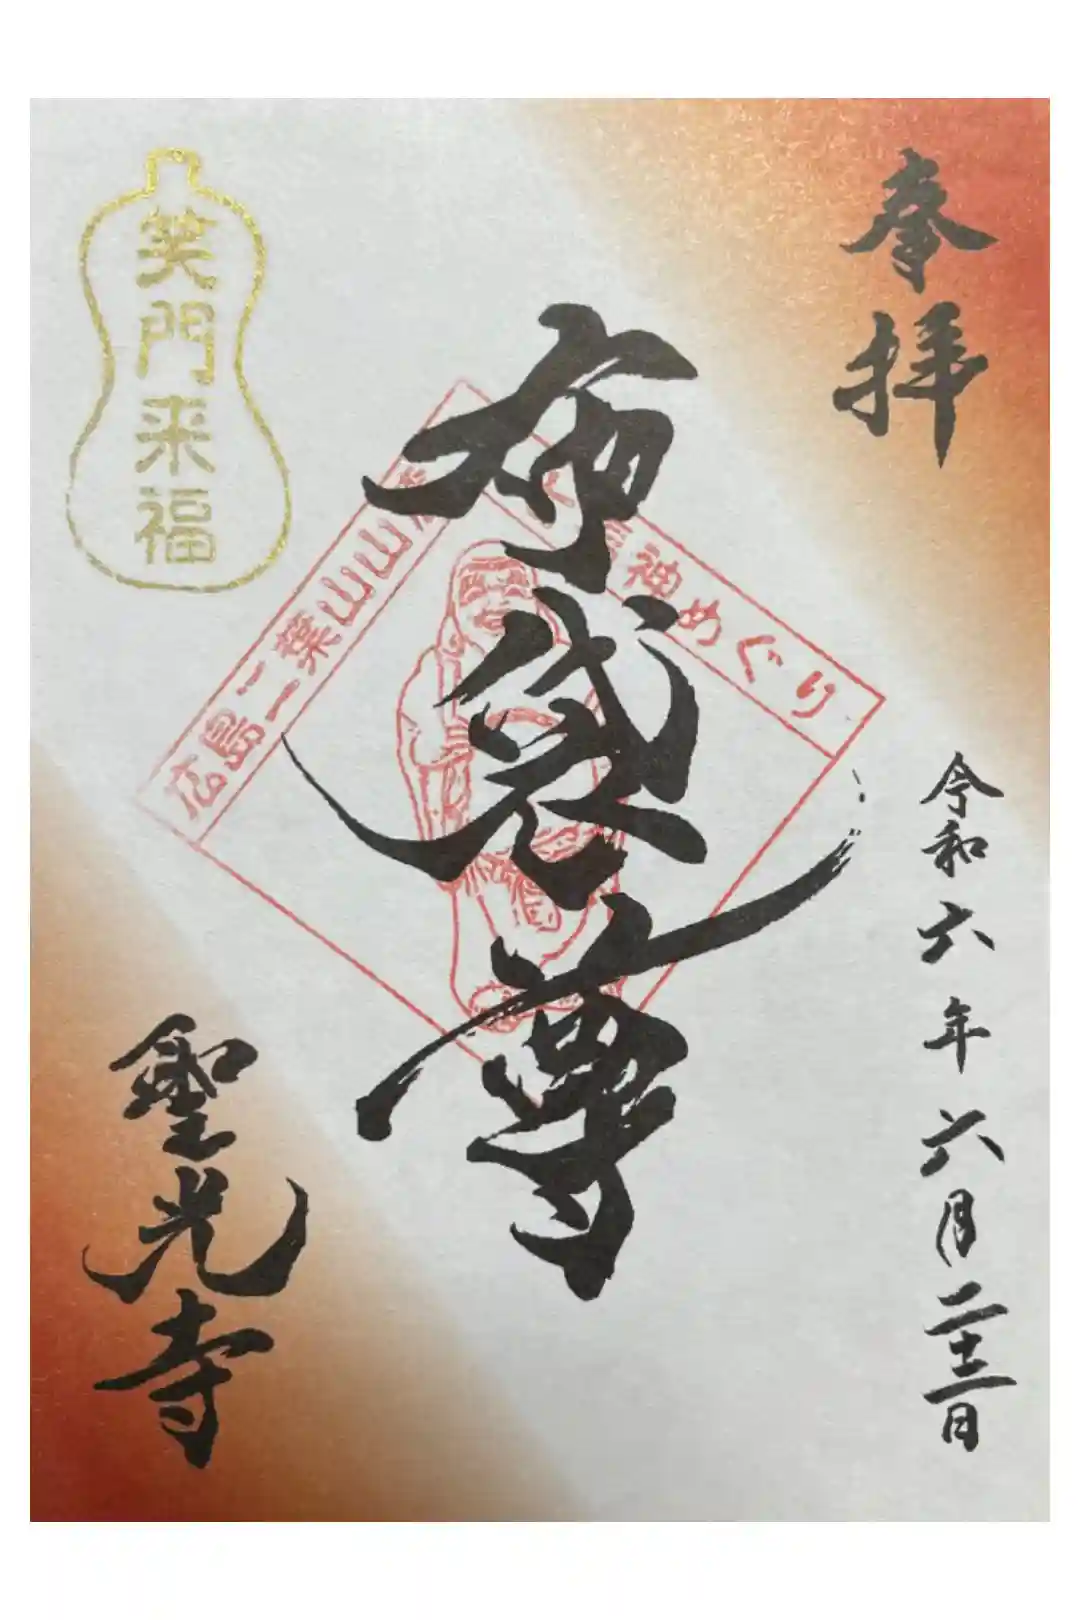 奉拝
令和六年六月二十二日
布袋尊
広島二葉山山
神めぐり
笑門来福
聖光寺